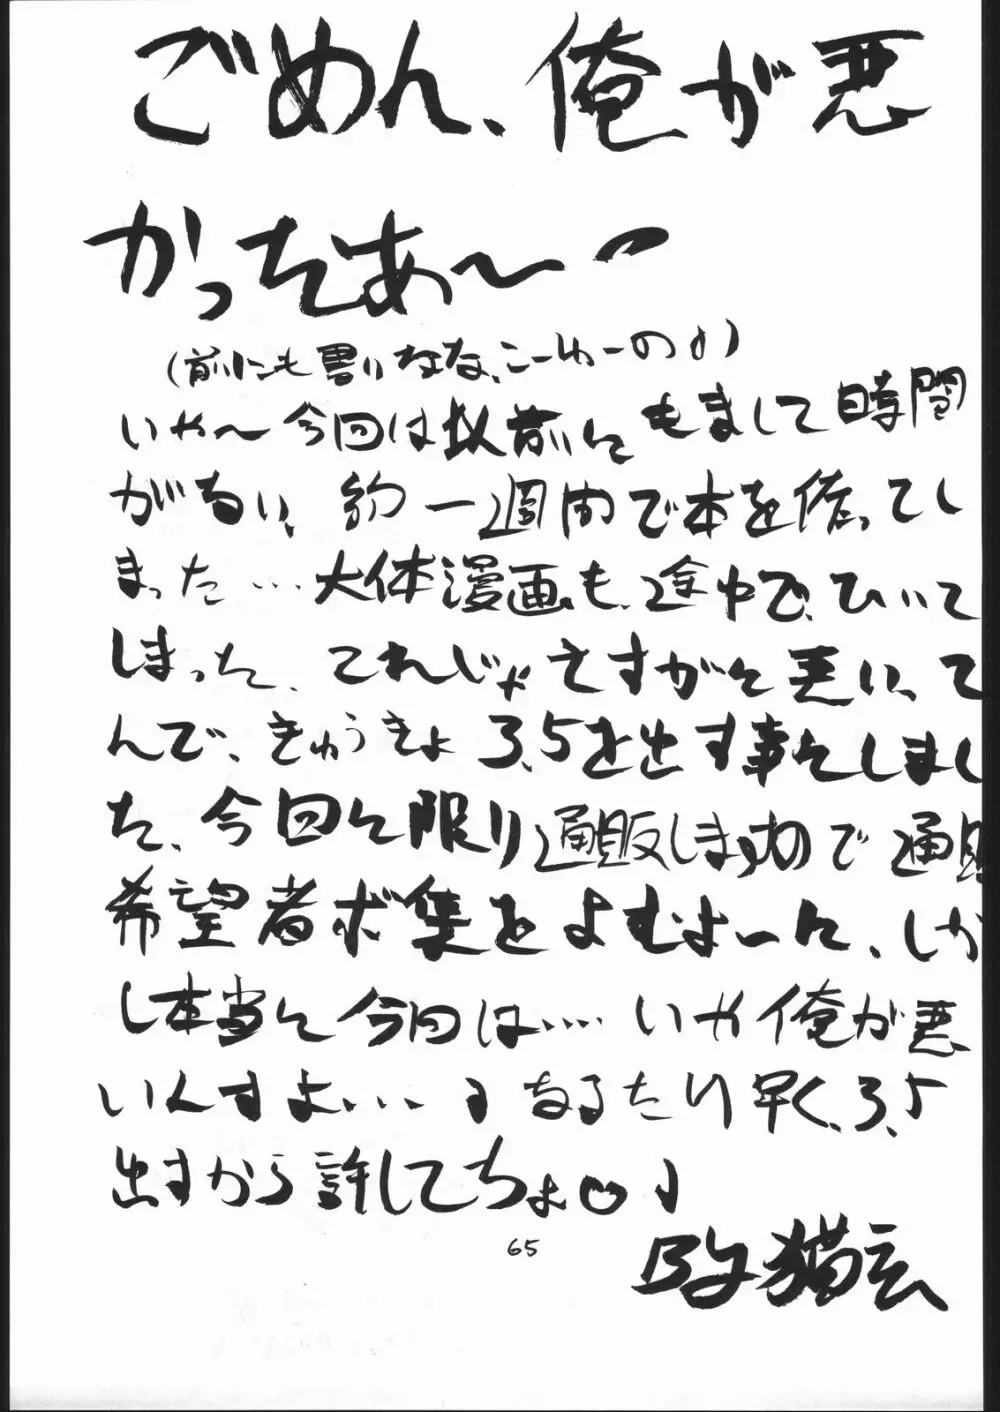 ごめん、俺が悪
かったあ〜ー
(前にも書いたなな、こーゆーの♪)
いや〜今回は以前にもまして時間
がない、約一週間で本を作ってし
まった…大体漫画も、途中で、ひいて
しまった、てれじゃさすがに悪い、て
んで、きゅうきょ3.5を出す事にしまし
た、今回に限り通販しますので通販
希望者ボ集をよむよーに、しか
し本当に今回は…いや俺が悪
いんすよ…♪なるたけ早く、3.5
出すから許してちょ♪
65
猫玄